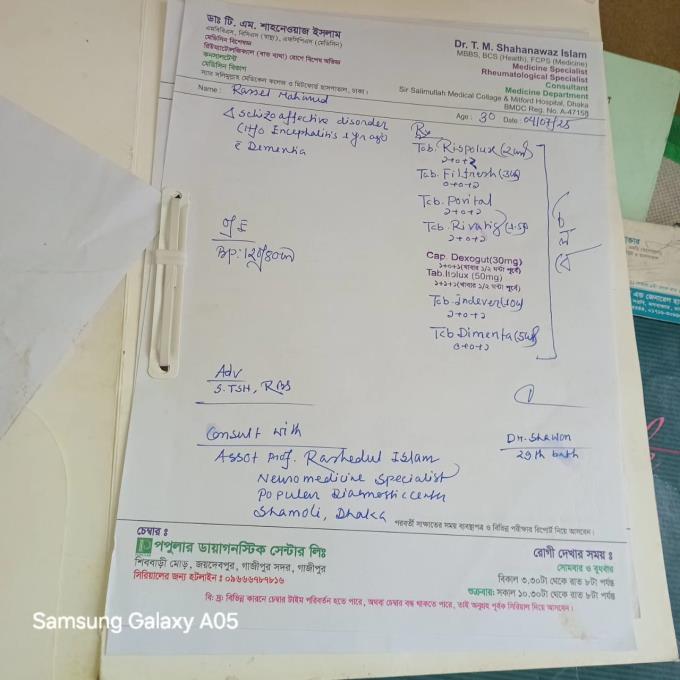 ডাঃ টি. এম. শাহনেওয়াজ ইসলাম
এমবিবিএস, বিসিএস (স্বাস্থ্য), এফসিপিএস (মেডিসিন)
মেডিসিন বিশেষজ্ঞ
রিউমাটোলজিক্যাল (বাত ব্যথা) রোগে বিশেষ অভিজ্ঞ
কনসালটেন্ট
মেডিসিন বিভাগ
স্যার সলিমুল্লাহ মেডিকেল কলেজ ও মিটফোর্ড হাসপাতাল, ঢাকা।
Dr. T. M. Shahanawaz Islam
MBBS, BCS (Health), FCPS (Medicine)
Medicine Specialist
Rheumatological Specialist
Consultant
Medicine Department
Sir Salimullah Medical Collage & Mitford Hospital, Dhaka
BMDC Reg. No. A-47158
Name : Rassel Mahmud
Age : 30 Date : 09/07/25
Δ schizoaffective disorder
Dementia
O/E
BP: 120/80
Adv
S. TSH, RBS
Consult with
Assot Prof. Rashedul Islam
Neuromedicine specialist
Populer Diagnostic center
Shamoli, Dhaka
Rx
Tab. Rispolux (2mg)
Tab. Filfresh (3mg)
০+০+১
Tab. Porital
১+০+১
Tab. Rivatig (1.5)
১+০+১
Cap. Dexogut(30mg)
১+০+১(খাবার ১/২ ঘন্টা পূর্বে)
Tab. Itolux (50mg)
১+১+১(খাবার ১/২ ঘন্টা পূর্বে)
Tab. Indever (10)
১+০+১
Tab Dimenta (5mg)
০+০+১
চলবে
Dr. Shawon
29th batch
পরবর্তী সাক্ষাতের সময় ব্যবস্থাপত্র ও বিভিন্ন পরীক্ষার রিপোর্ট নিয়ে আসবেন।
চেম্বার ঃ
পপুলার ডায়াগনস্টিক সেন্টার লিঃ
শিববাড়ী মোড়, জয়দেবপুর, গাজীপুর সদর, গাজীপুর
সিরিয়ালের জন্য হটলাইন ঃ ০৯৬৬৬৭৮৭৮১৬
রোগী দেখার সময় ঃ
সোমবার ও বুধবার
বিকাল ৩.৩০টা থেকে রাত ৮টা পর্যন্ত
শুক্রবার: সকাল ১০.৩০টা থেকে রাত ৮টা পর্যন্ত
বি: দ্র: বিভিন্ন কারনে চেম্বার টাইম পরিবর্তন হতে পারে, অথবা চেম্বার বন্ধ থাকতে পারে, তাই অনুগ্রহ পূর্বক সিরিয়াল দিয়ে আসবেন।
Samsung Galaxy A05